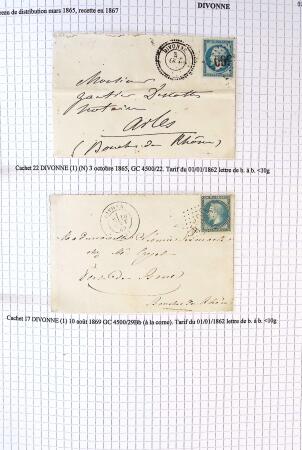 DIVONNE
eau de distribution mars 1865, recette en 1867
DIVONNE
3
Monsieur
notaire
Arles
(Bouches du Rhône)
Cachet 22 DIVONNE (1) (N) 3 octobre 1865, GC 4500/22. Tarif du 01/01/1862 lettre de b. à b. <10g
Mademoiselle
chez Mr
Bouches du Rhône
Cachet 17 DIVONNE (1) 10 août 1869 GC 4500/29Bb (à la corne). Tarif du 01/01/1862 lettre de b. à b. <10g